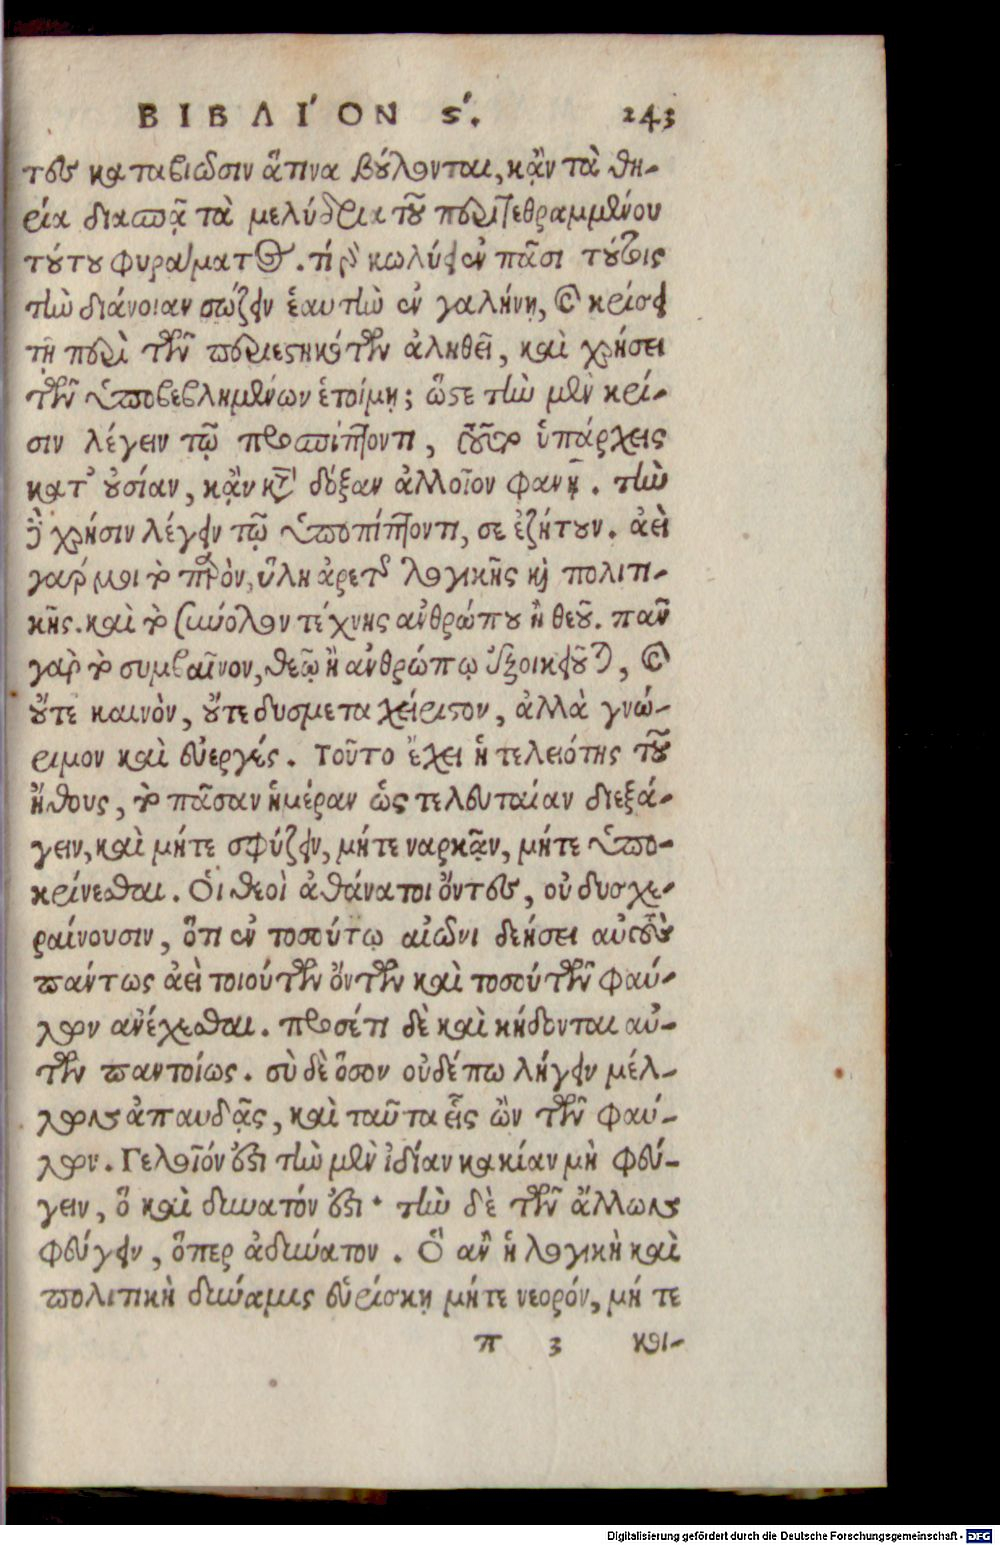 ΒΙΒΛΙ´ΟΝ ϛ´. 243
τες καταβιῶσιν ἅτινα βούλονται, κᾂν τὰ θη-
ρία διασπᾷ τὰ μελύδρια τοῦ περιτεθραμμένου
τούτου φυράματος. τί γὰρ κωλύει ἐν πᾶσι τούτοις
τὴν διάνοιαν σώζειν ἑαυτὴν ἐν γαλήνῃ, καὶ κρίσει
τῇ περὶ τῶν περιεστηκότων ἀληθεῖ, καὶ χρήσει
τῶν ὑποβεβλημένων ἑτοίμῃ; ὥστε τὴν μὲν κρί-
σιν λέγειν τῷ προσπίπτοντι, τοῦτο ὑπάρχεις
κατ' οὐσίαν, κᾂν κατὰ δόξαν ἀλλοῖον φανῇ. τὴν
δὲ χρῆσιν λέγειν τῷ ὑποπίπτοντι, σε ἐζήτουν. ἀεὶ
γάρ μοι τὸ παρὸν, ὕλη ἀρετῆς λογικῆς καὶ πολιτι-
κῆς. καὶ τὸ σύνολον τέχνης ἀνθρώπου ἢ θεοῦ. πᾶν
γὰρ τὸ συμβαῖνον, θεῷ ἢ ἀνθρώπῳ ἐξοικειοῦται, καὶ
οὔτε καινὸν, οὔτε δυσμεταχείριστον, ἀλλὰ γνώ-
ριμον καὶ εὐεργές. Τοῦτο ἔχει ἡ τελειότης τοῦ
ἤθους, τὸ πᾶσαν ἡμέραν ὡς τελευταίαν διεξά-
γειν, καὶ μήτε σφύζειν, μήτε ναρκᾷν, μήτε ὑπο-
κρίνεσθαι. Οἱ θεοὶ ἀθάνατοι ὄντες, οὐ δυσχε-
ραίνουσιν, ὅτι ἐν τοσούτῳ αἰῶνι δεήσει αὐτοὺς
πάντως ἀεὶ τοιούτων ὄντων καὶ τοσούτων φαύ-
λων ἀνέχεσθαι. προσέτι δὲ καὶ κήδονται αὐ-
τῶν παντοίως. σὺ δὲ ὅσον οὐδέπω λήγειν μέλ-
λων ἀπαυδᾷς, καὶ ταῦτα εἷς ὢν τῶν φαύ-
λων. Γελοῖόν ἐστι τὴν μὲν ἰδίαν κακίαν μὴ φεύ-
γειν, ὃ καὶ δυνατόν ἐστι· τὴν δὲ τῶν ἄλλων
φεύγειν, ὅπερ ἀδύνατον. Ὃ ἂν ἡ λογικὴ καὶ
πολιτικὴ δύναμις εὑρίσκῃ μήτε νεορόν, μή τε
π 3 κοι-
Digitalisierung gefördert durch die Deutsche Forschungsgemeinschaft - DFG